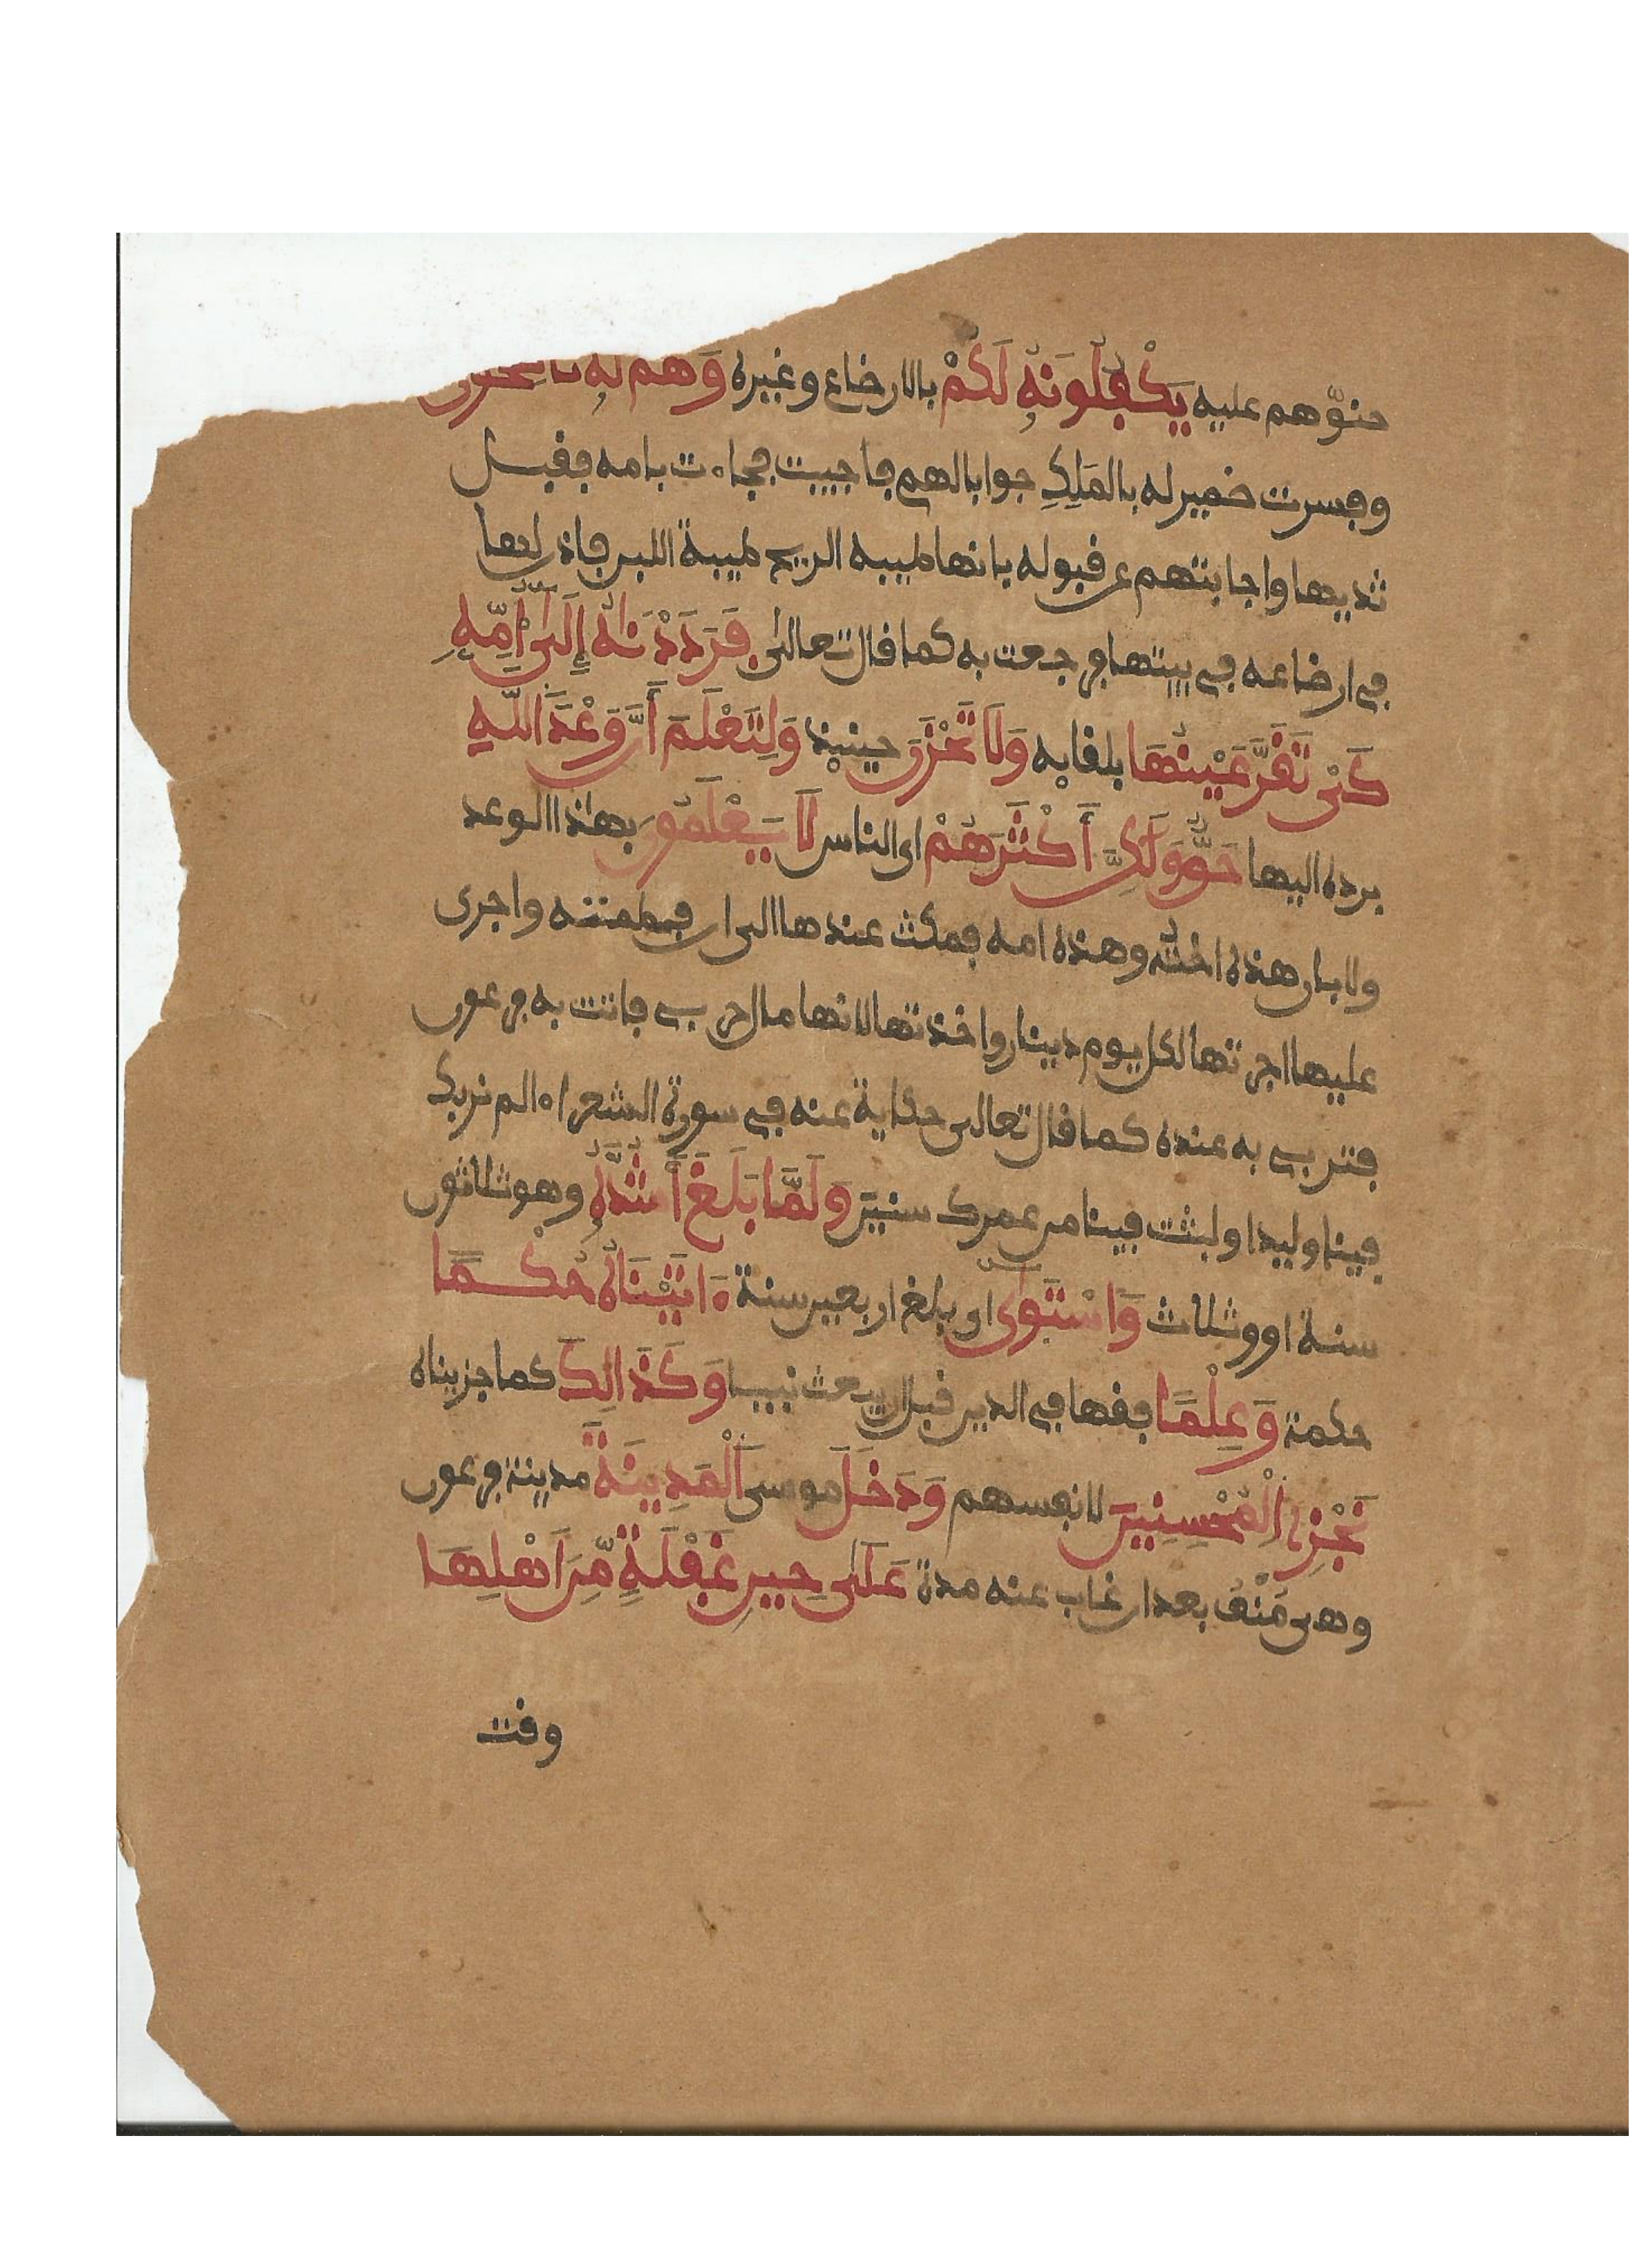 حنوّهم عليه يَكْفُلُونَهُۥ لَكُمْ بالارضاع وغيره وَهُمْ لَهُۥ نَاصِحُونَ
وفسرت ضمير له بالمَلِكِ جوابا لهم فاجيبت فجاءت بامه فقبل
ثديها واجابتهم عن قبوله بانها طيبة الريح طيبة اللبن فاذن لها
في ارضاعه في بيتها فرجعت به كما قال تعالى فَرَدَدْنَٰهُ إِلَىٰٓ أُمِّهِۦ
كَىْ تَقَرَّ عَيْنُهَا بلقايه وَلَا تَحْزَنَ حينيذ وَلِتَعْلَمَ أَنَّ وَعْدَ اَللَّهِ
برده اليها حَقٌّ وَلَٰكِنَّ أَكْثَرَهُمْ اى الناس لَا يَعْلَمُونَ بهٰذا الوعد
ولا بان هذه اخته وهذه امه فمكث عندها الى ان فطمته واجرى
عليها اجرتها لكل يوم دينار واخذتها لانها مال حربي فاتت به فرعون
فتربي به عنده كما قال تعالى حكاية عنه في سورة الشعراء الم نربك
فينا وليدا ولبثت فينا من عمرك سنينَ وَلَمَّا بَلَغَ أَشُدَّهُۥ وهو ثلاثون
سنة او وثلاث وَاسْتَوَىٰٓ اى بلغ اربعين سنة ءَاتَيْنَاهُ حُكْمًا
حكمة وَعِلْمًا فقها في الدين قبل ان يبعث نبييا وَكَذَٰلِكَ كما جزيناه
نَجْزِے اِلْمُحْسِنِينَ لانفسهم وَدَخَلَ موسى اَلْمَدِينَةَ مدينة فرعون
وهى مَنْفُ بعد ان غاب عنه مدة عَلَىٰ حِينِ غَفْلَةٍ مِّنَ اَهْلِهَا
وقت